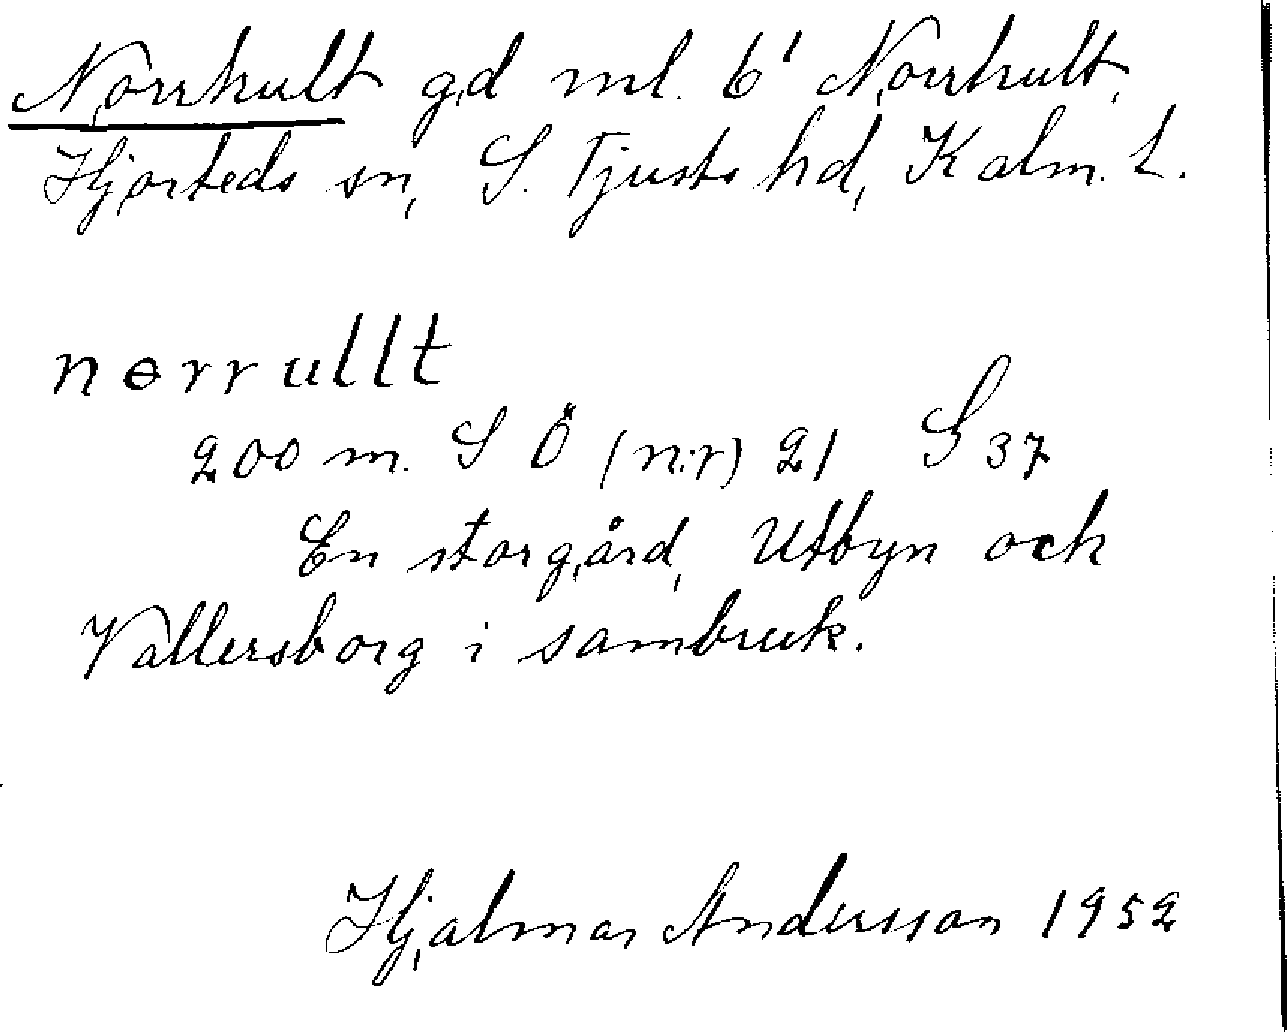 Norrhult gd ml. 6¹ Norrhult,
Hjorteds sn, S. Tjusts hd, Kalm. L.
nɵrrullt
200 m. S Ö (n:r) 21 G 37
En storgård, Utbyn och
Vallersborg i sambruk.
Hjalmar Andersson 1952